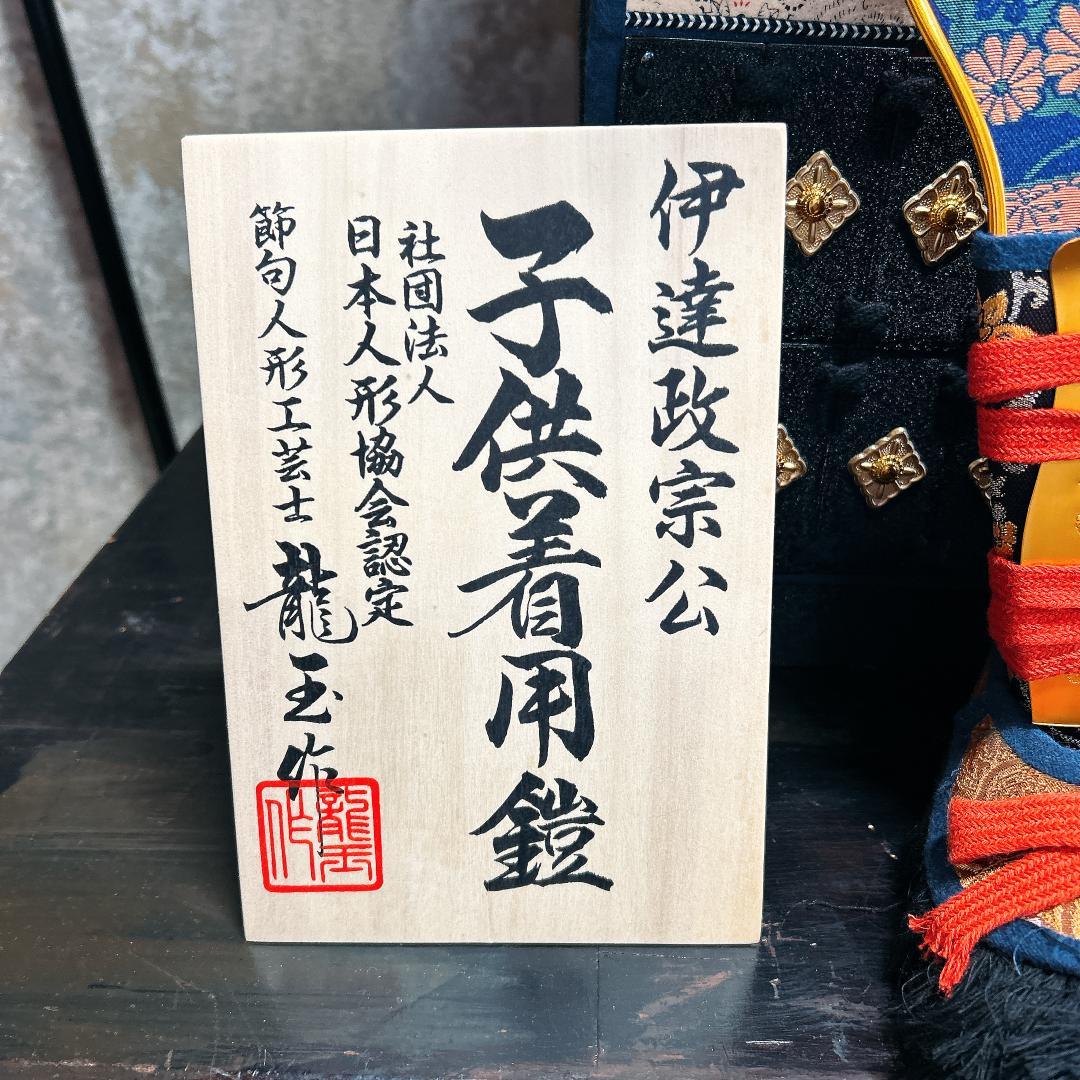 伊達政宗公
子供着用鎧
社団法人
日本人形協会認定
節句人形工芸士 龍玉作
龍玉作